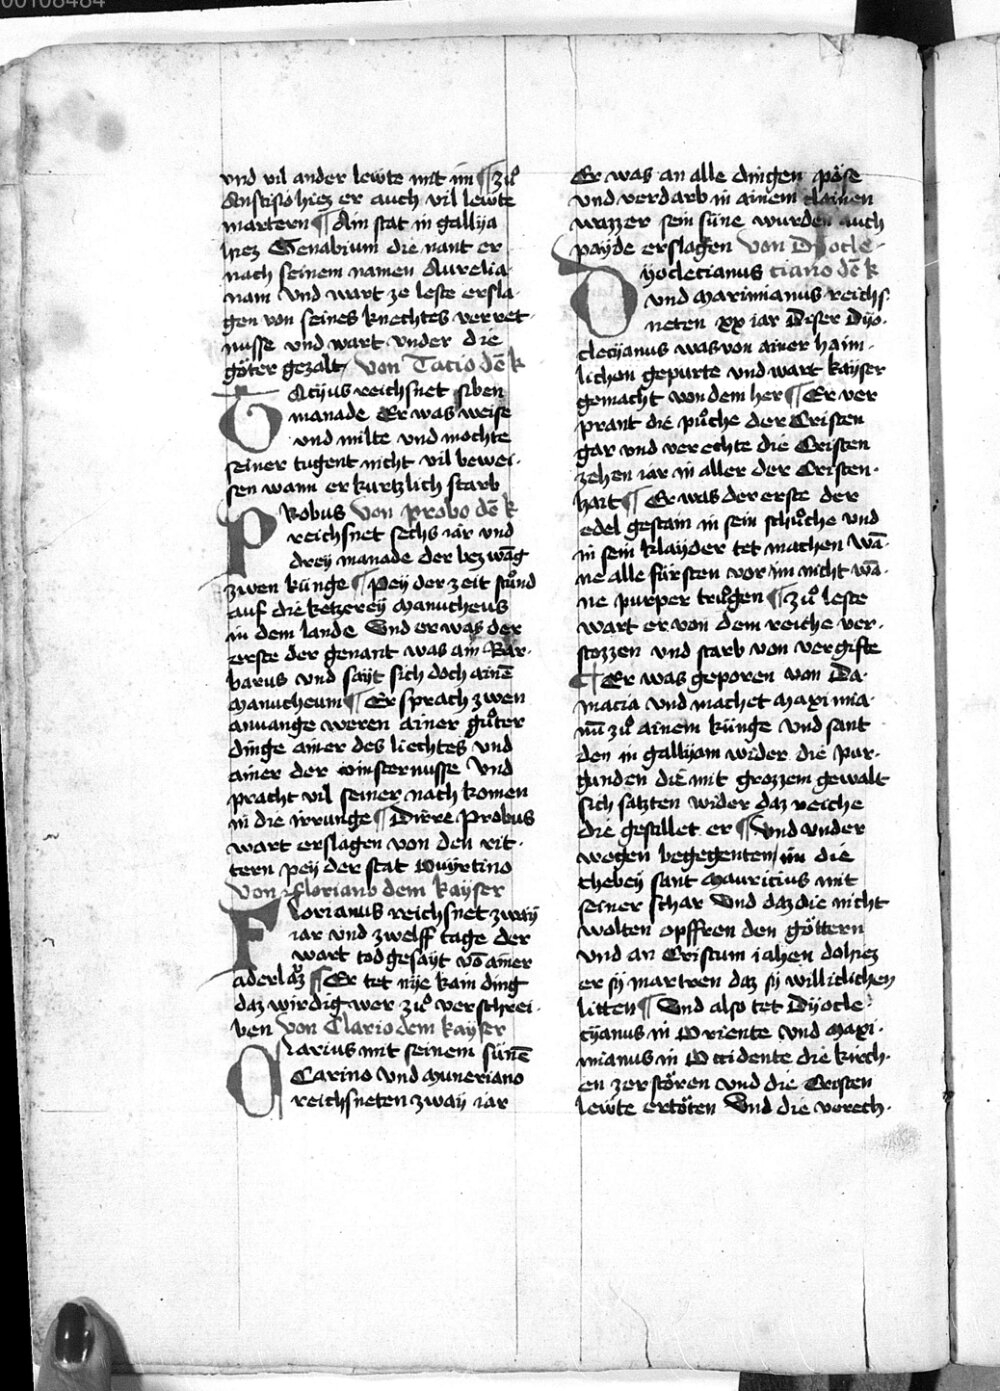 00108484
vnd vil ander lewte mit im ¶ zuͦ
Anstisio hiez er auch vil lewte
martern ¶ Ain stat in gallija
hiez Genabrium die nant er
nach seinem namen Aurelia-
nam vnd wart ze leste ersla-
gen von seines knechtes verret-
nusse vnd wart vnder die
göter gezalt von Tacio dē k
Tacijus reichsnet siben
manade Er was weise
vnd milte vnd mochte
seiner tugent nicht vil bewei-
sen wann er kurtzlich starb
PRobus von Probo dē k
reichsnet sechs iar vnd
dreij manade der bezwāg
zwen künge ¶ Peij der zeit stuͦnd
auf die ketzereij Manicheus
in dem lande Vnd er was der
erste der genant was ain Bar-
barus vnd saijt sich doch ainē
Manicheum ¶ Er sprach zwen
anuange weren ainer guͦter
dinge ainer des liechtes vnd
ainer der vinsternusse Vnd
pracht vil seiner nach komen
in die irrunge ¶ Dirre Probus
wart erslagen von den rit-
tern peij der stat
Von Floriano dem kaijser
FLorianus reichsnet zwaij
iar vnd zwelff tage der
wart tod gesaijt vō ainer
aderlaz ¶ Er tet nije kain ding
daz wirdig wer zuͦ verschrei-
ben von Clario dem kaijser
Clarius mit seinem sünē
Carino vnd Muneriano
reichsneten zwaij iar
Er was an alle dingen pöse
vnd verdarb in ainem clainen
wazzer sein süne wurden auch
paijde erslagen von Dijocle-
Dijoclecianus ciano dē k
vnd Maximianus reichs-
neten xx iar Diser Dijo-
clecijanus was von ainer haim-
lichen gepurte vnd wart kaijser
gemacht von dem her ¶ Er ver
prant die puͦche der Cristen
gar vnd verechte die Cristen
zehen iar in aller der Cristen-
hait ¶ Er was der erste der
edel gestain in sein schuͦche vnd
in sein klaijder tet machen wā-
ne alle fürsten vor im nicht wā-
ne purper truͦgen ¶ zuͦ leste
wart er von dem reiche ver-
stozzen vnd starb von vergifte
¶ Er was geporen von Da-
macia vnd machet Maximia-
nū zuͦ ainem künge vnd sant
den in gallijam wider die pur-
gunden die mit grozzem gewalt
sich satzten wider daz reiche
die gestillet er ¶ Vnd vnder
wegen begegenten im die
thebeij sant Mauricius mit
seiner schar Vnd daz die nicht
wolten opffren den göttern
vnd an Cristum iahen do hiez
er sij martren daz sij williclichen
litten ¶ Vnd also tet Dijocle-
cijanus in Oriente vnd Maxi-
mianus in Occidente die kirch-
en zerstören vnd die Cristen
lewte ertöten Vnd die verech-